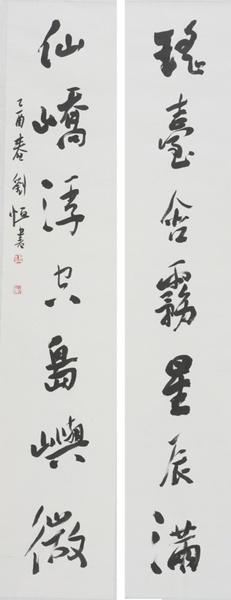 瑤臺含霧星辰滿
仙嶠浮空島嶼微
乙酉春劉恒書